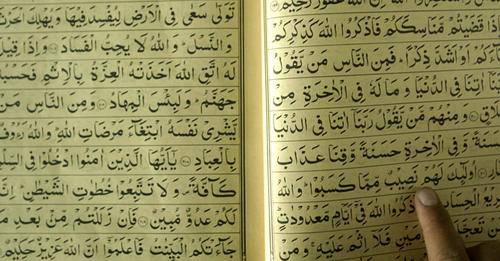 قَضَيْتُمْ مَّنَاسِكَكُمْ فَاذْكُرُوا اللّٰهَ كَذِكْرِكُمْ
اَوْ اَشَدَّ ذِكْرًا ۗ فَمِنَ النَّاسِ مَنْ يَّقُوْلُ
اٰتِنَا فِي الدُّنْيَا وَمَا لَهٗ فِي الْاٰخِرَةِ مِنْ
وَمِنْهُمْ مَّنْ يَّقُوْلُ رَبَّنَا اٰتِنَا فِي الدُّنْيَا
وَّفِي الْاٰخِرَةِ حَسَنَةً وَّقِنَا عَذَابَ
اُولٰٓئِكَ لَهُمْ نَصِيْبٌ مِّمَّا كَسَبُوْا ۗ وَاللّٰهُ
الْحِسَابِ اللّٰهَ فِيْٓ اَيَّامٍ مَّعْدُوْدٰتٍ
فَلَآ اِثْمَ عَلَيْهِ ۚ وَمَنْ
تَوَلّٰى سَعٰى فِي الْاَرْضِ لِيُفْسِدَ فِيْهَا وَيُهْلِكَ
وَالنَّسْلَ ۗ وَاللّٰهُ لَا يُحِبُّ الْفَسَادَ وَاِذَا قِيْلَ
لَهُ اتَّقِ اللّٰهَ اَخَذَتْهُ الْعِزَّةُ بِالْاِثْمِ فَحَسْبُهٗ
جَهَنَّمُ ۗ وَلَبِئْسَ الْمِهَادُ وَمِنَ النَّاسِ مَنْ
يَّشْرِيْ نَفْسَهُ ابْتِغَآءَ مَرْضَاتِ اللّٰهِ ۗ وَاللّٰهُ رَءُوْفٌ
بِالْعِبَادِ يٰٓاَيُّهَا الَّذِيْنَ اٰمَنُوا ادْخُلُوْا فِي السِّلْمِ
كَآفَّةً ۖ وَّلَا تَتَّبِعُوْا خُطُوٰتِ الشَّيْطٰنِ ۗ اِنَّهٗ
لَكُمْ عَدُوٌّ مُّبِيْنٌ فَاِنْ زَلَلْتُمْ مِّنْۢ بَعْدِ مَا
جَآءَتْكُمُ الْبَيِّنٰتُ فَاعْلَمُوْٓا اَنَّ اللّٰهَ عَزِيْزٌ حَكِيْمٌ